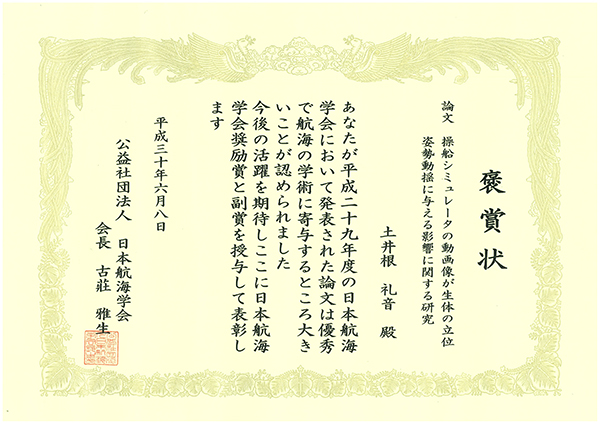 褒賞状
論文 操船シミュレータの動画像が生体の立位
姿勢動揺に与える影響に関する研究
土井根 礼音 殿
あなたが平成二十九年度の日本航海
学会において発表された論文は優秀
で航海の学術に寄与するところ大き
いことが認められました
今後の活躍を期待しここに日本航海
学会奨励賞と副賞を授与して表彰し
ます
平成三十年六月八日
公益社団法人 日本航海学会
会長 古莊 雅生